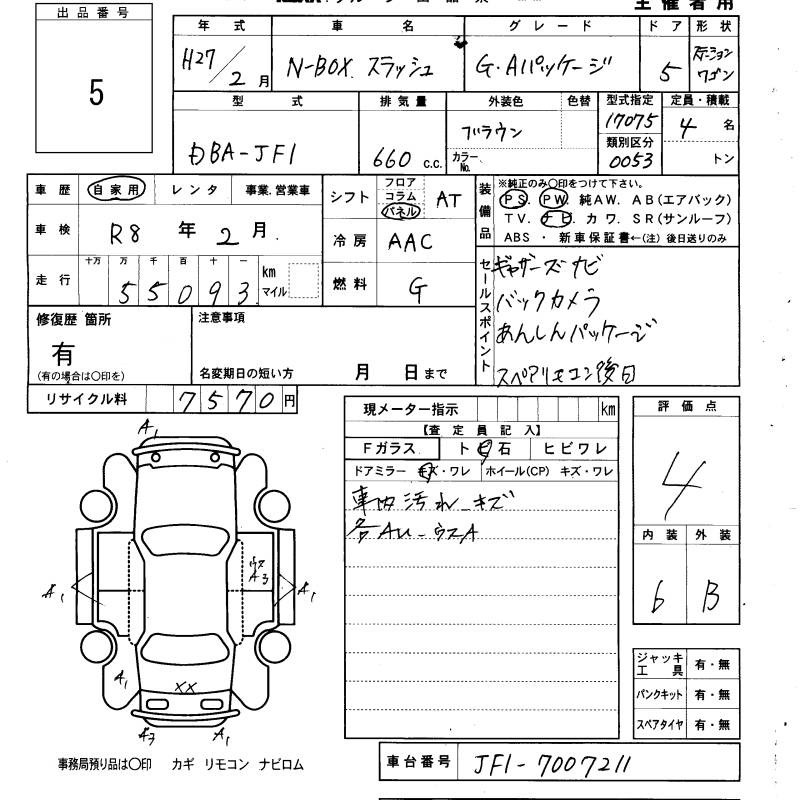 主催者用
出品番号
5
年式 車名 グレード ドア 形状
H27/2月 N-BOX スラッシュ G・Aパッケージ 5 ステーションワゴン
型式 排気量 外装色 色替 型式指定 定員・積載
DBA-JF1 660 c.c. ブラウン カラーNo. 17075 4名
類別区分
0053 トン
車歴 自家用 レンタ 事業.営業車
シフト フロア コラム パネル AT
車検 R8年2月
冷房 AAC
走行 十万 万 千 百 十 一
55093 km マイル
燃料 G
装備品
※純正のみ〇印をつけて下さい。
PS. PW. 純AW. AB(エアバック)
TV. ナビ カワ. SR(サンルーフ)
ABS ・ 新車保証書←(注) 後日送りのみ
セールスポイント
ギャザーズナビ
バックカメラ
あんしんパッケージ
スペアリモコン後日
修復歴 箇所
有
(有の場合は〇印を)
注意事項
名変期日の短い方 月 日まで
リサイクル料 7570円
現メーター指示 km
【査定員記入】
Fガラス ト 石 ヒビワレ
ドアミラー キズ・ワレ ホイール(CP) キズ・ワレ
車内汚れ_キズ
各AU_ウスA
評価点
4
内装 外装
6 B
A1
A1
ウス
A3
A1
A1
XX
A3
A1
ジャッキ工具 有・無
パンクキット 有・無
スペアタイヤ 有・無
事務局預り品は〇印 カギ リモコン ナビロム
車台番号 JF1-7007211